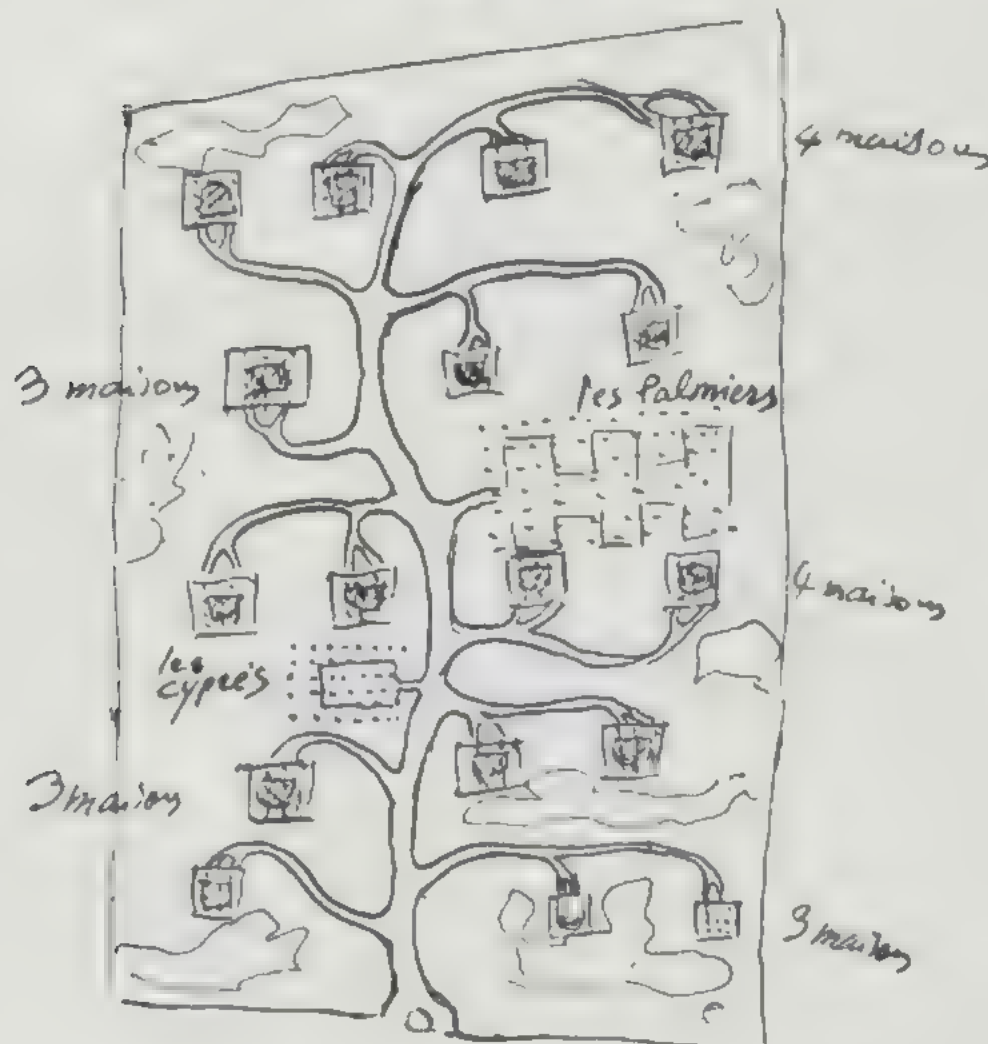 4 maisons
3 maisons
les Palmiers
4 maisons
les
cyprès
3 maisons
3 maisons